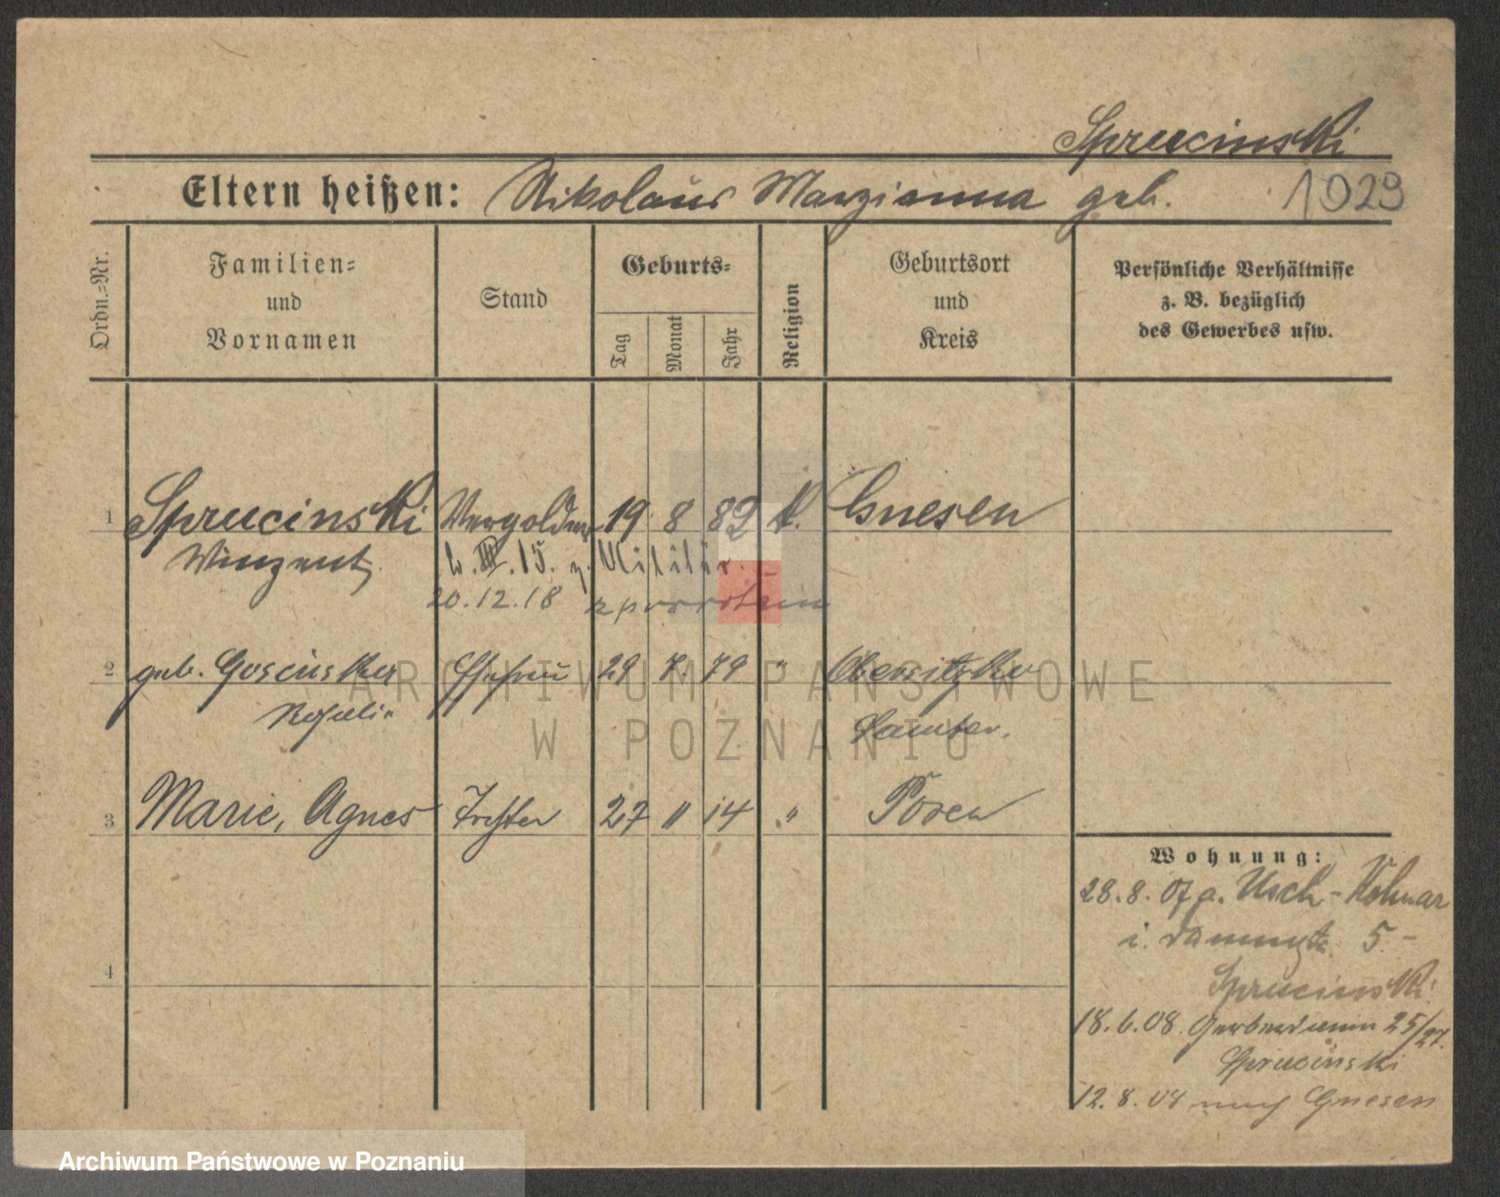 Sprucinski
Eltern heißen: Nikolaus Marzianna geb. 1929
Ordn.=Nr.
Familien=
und
Vornamen
Stand
Geburts=
Tag
Monat
Jahr
Religion
Geburtsort
und
Kreis
Persönliche Verhältnisse
z. B. bezüglich
des Gewerbes usw.
1 Sprucinski Vergolder 19 8 82 k. Gnesen
Winzent 6. III. 15. z. Militär.
20.12.18 z powrotem
2 geb. Goscinska Ehefrau 29 7. 79 " Obersitzko
Rosalie Samter.
3 Marie, Agnes Tochter 27 11 14 " Posen
4
Wohnung:
28.8.07 a. Usch-Kolmar
i. 5.
Sprucinski
18.6.08. Gerberdamm 25/27.
Sprucinski
12.8.08 nach Gnesen
ARCHIWUM PAŃSTWOWE
W POZNANIU
Archiwum Państwowe w Poznaniu